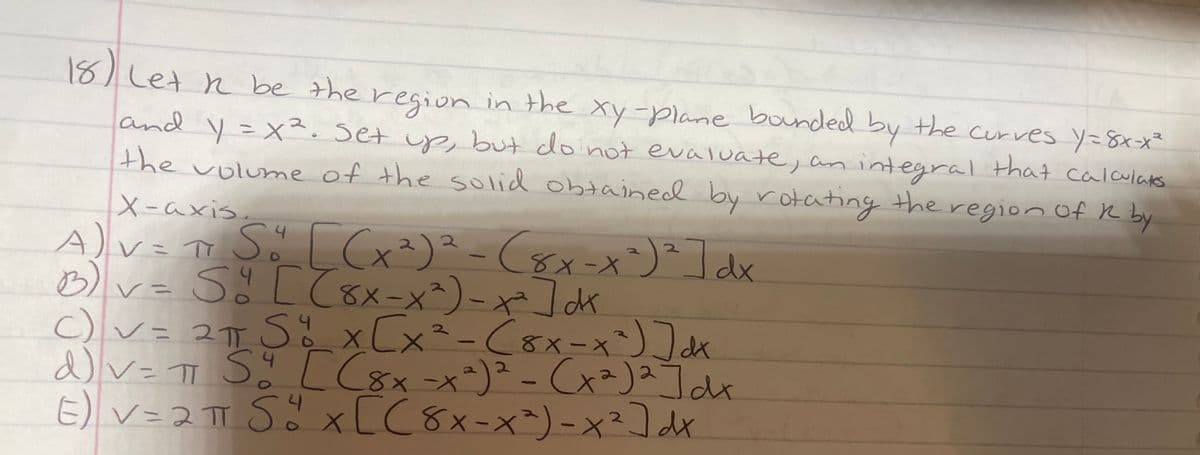 18) Let R be the region in the xy-plane bounded by the curves y=8x-x²
and y = x². Set up, but do not evaluate, an integral that calculates
the volume of the solid obtained by rotating the region of R by
x-axis.
A) V = π ∫₀⁴ [(x²)² - (8x-x²)²] dx
B) V = ∫₀⁴ [(8x-x²)-x²] dx
C) V = 2π ∫₀⁴ x[x² - (8x-x²)] dx
d) V = π ∫₀⁴ [(8x-x²)² - (x²)²] dx
E) V = 2π ∫₀⁴ x[(8x-x²)-x²] dx